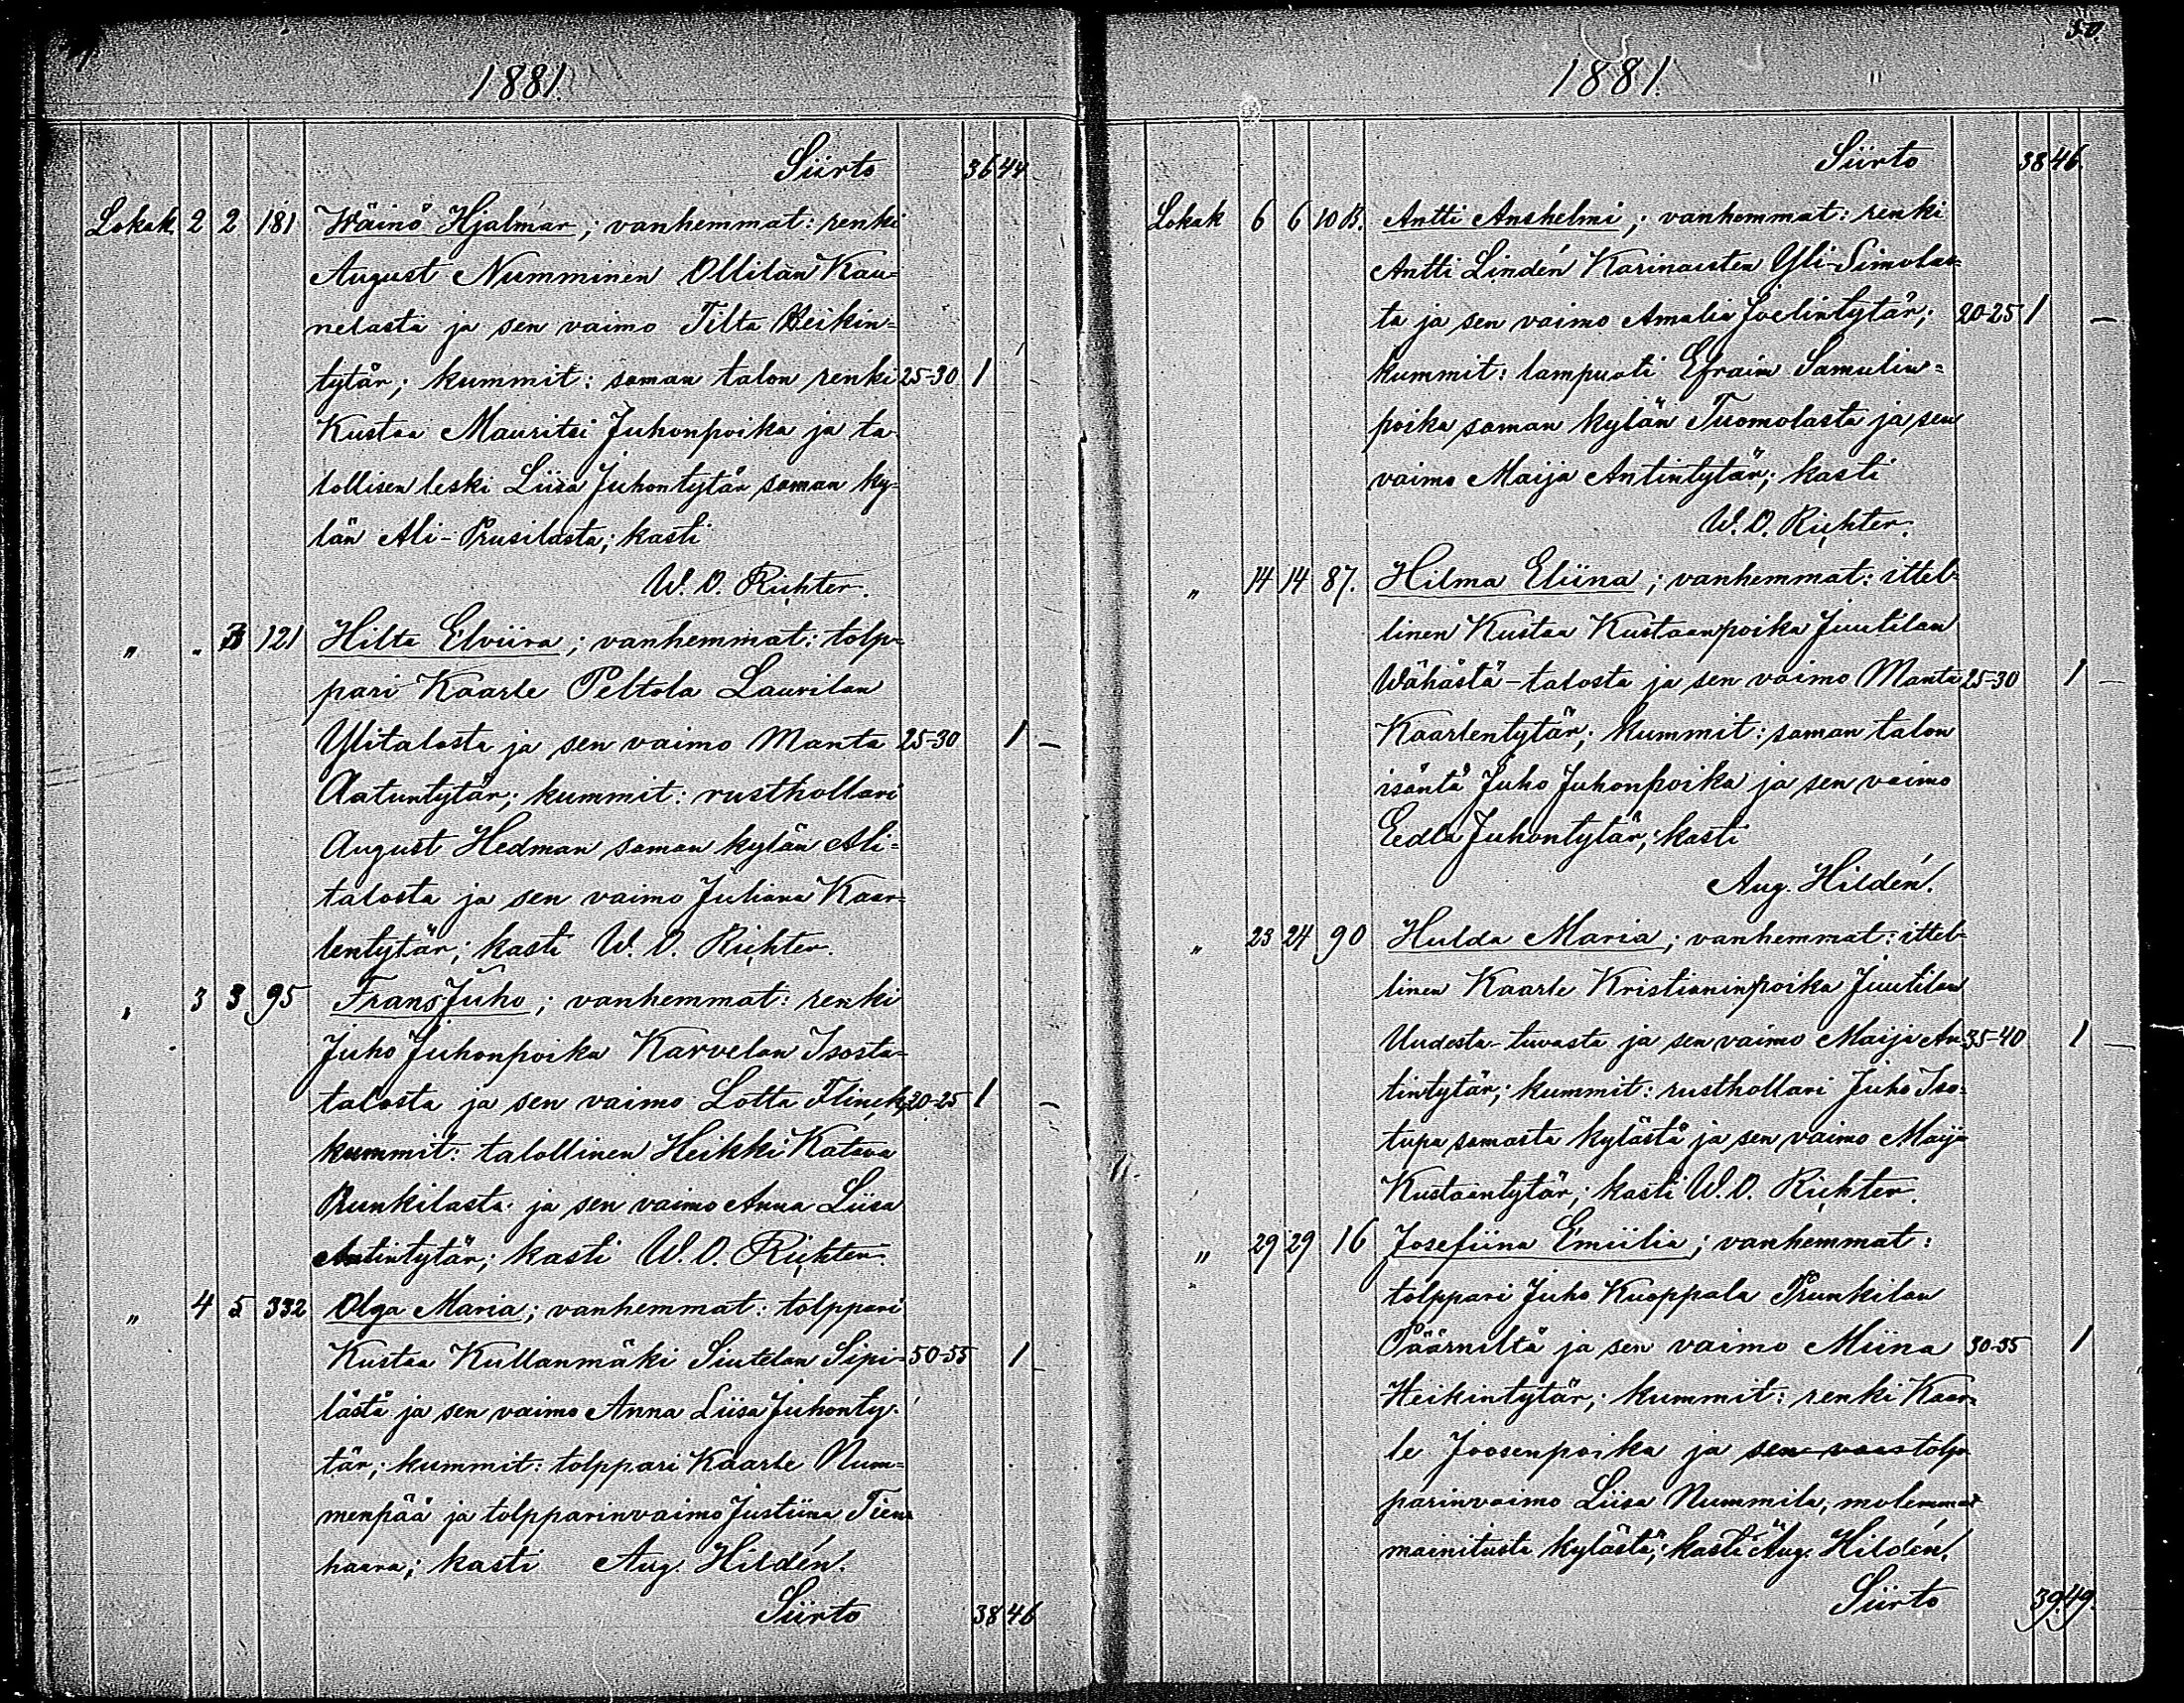 1881.
Siirto 36 44
Lokak. 2 2 181 Wäinö Hjalmar; vanhemmat: renki
August Numminen Ollilan Kau=
nelasta ja sen vaimo Tilta Heikin=
tytär; kummit: saman talon renki 25-30 1
Kustaa Mauritsi Juhonpoika ja ta=
lollisen leski Liisa Juhontytär saman ky=
län Ali-Prusilasta; kasti
W. O. Richter.
" " 3 121 Hilta Elviira; vanhemmat: tolp=
pari Kaarle Peltola Laurilan
Ylitalosta ja sen vaimo Manta 25-30 1 –
Aatuntytär; kummit: rusthollari
August Hedman saman kylän Ali=
talosta ja sen vaimo Juliana Kaar=
lentytär; kasti W. O. Richter.
" 3 3 95 Frans Juho; vanhemmat: renki
Juho Juhonpoika Karvelan Isosta=
talosta ja sen vaimo Lotta Flinck; 20-25 1 –
kummit: talollinen Heikki Katava
Prunkilasta ja sen vaimo Anna Liisa
Antintytär; kasti W. O. Richter.
" 4 5 332 Olga Maria; vanhemmat: tolppari
Kustaa Kullanmäki Siutelan Sipi= 50-55 1
lästä ja sen vaimo Anna Liisa Juhonty=
tär; kummit: tolppari Kaarle Num=
menpää ja tolpparinvaimo Justiina Tien=
haara; kasti Aug. Hildén.
Siirto 38 46
50.
1881.
Siirto 38 46.
Lokak 6 6 10 B. Antti Anshelmi; vanhemmat: renki
Antti Lindén Karinaisten Yli-Simolas=
ta ja sen vaimo Amalia Joelintytär; 20-25 1 –
kummit: lampuoti Efraim Samulin=
poika saman kylän Tuomolasta ja sen
vaimo Maija Antintytär; kasti
W. O. Richter.
" 14 14 87. Hilma Eliina; vanhemmat: ittel=
linen Kustaa Kustaanpoika Juutilan
Wähästä-talosta ja sen vaimo Manta 25-30 1 –
Kaarlentytär; kummit: saman talon
isäntä Juho Juhonpoika ja sen vaimo
Eedla Juhontytär; kasti
Aug. Hildén.
" 23 24 90 Hulda Maria; vanhemmat: ittel=
linen Kaarle Kristianinpoika Juutilan
Uudesta-tuvasta ja sen vaimo Maija An= 35-40 1 –
tintytär; kummit: rusthollari Juho Iso=
tupa samasta kylästä ja sen vaimo Maija
Kustaantytär; kasti W. O. Richter.
" 29 29 16 Josefiina Emiilia; vanhemmat:
tolppari Juho Kuoppala Prunkilan
Päärniltä ja sen vaimo Miina 30-35 1
Heikintytär; kummit: renki Kaar=
le Joosenpoika ja sen tolp=
parinvaimo Liisa Nummila, molemmat
mainitusta kylästä; kasti Aug. Hildén.
Siirto 39 49.